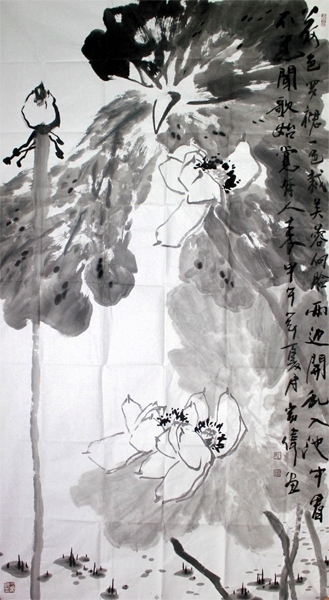 荷色罗裙一色裁芙蓉向脸兩边開乱入池中看
不见聞歌始觉有人来甲午年夏月偉画